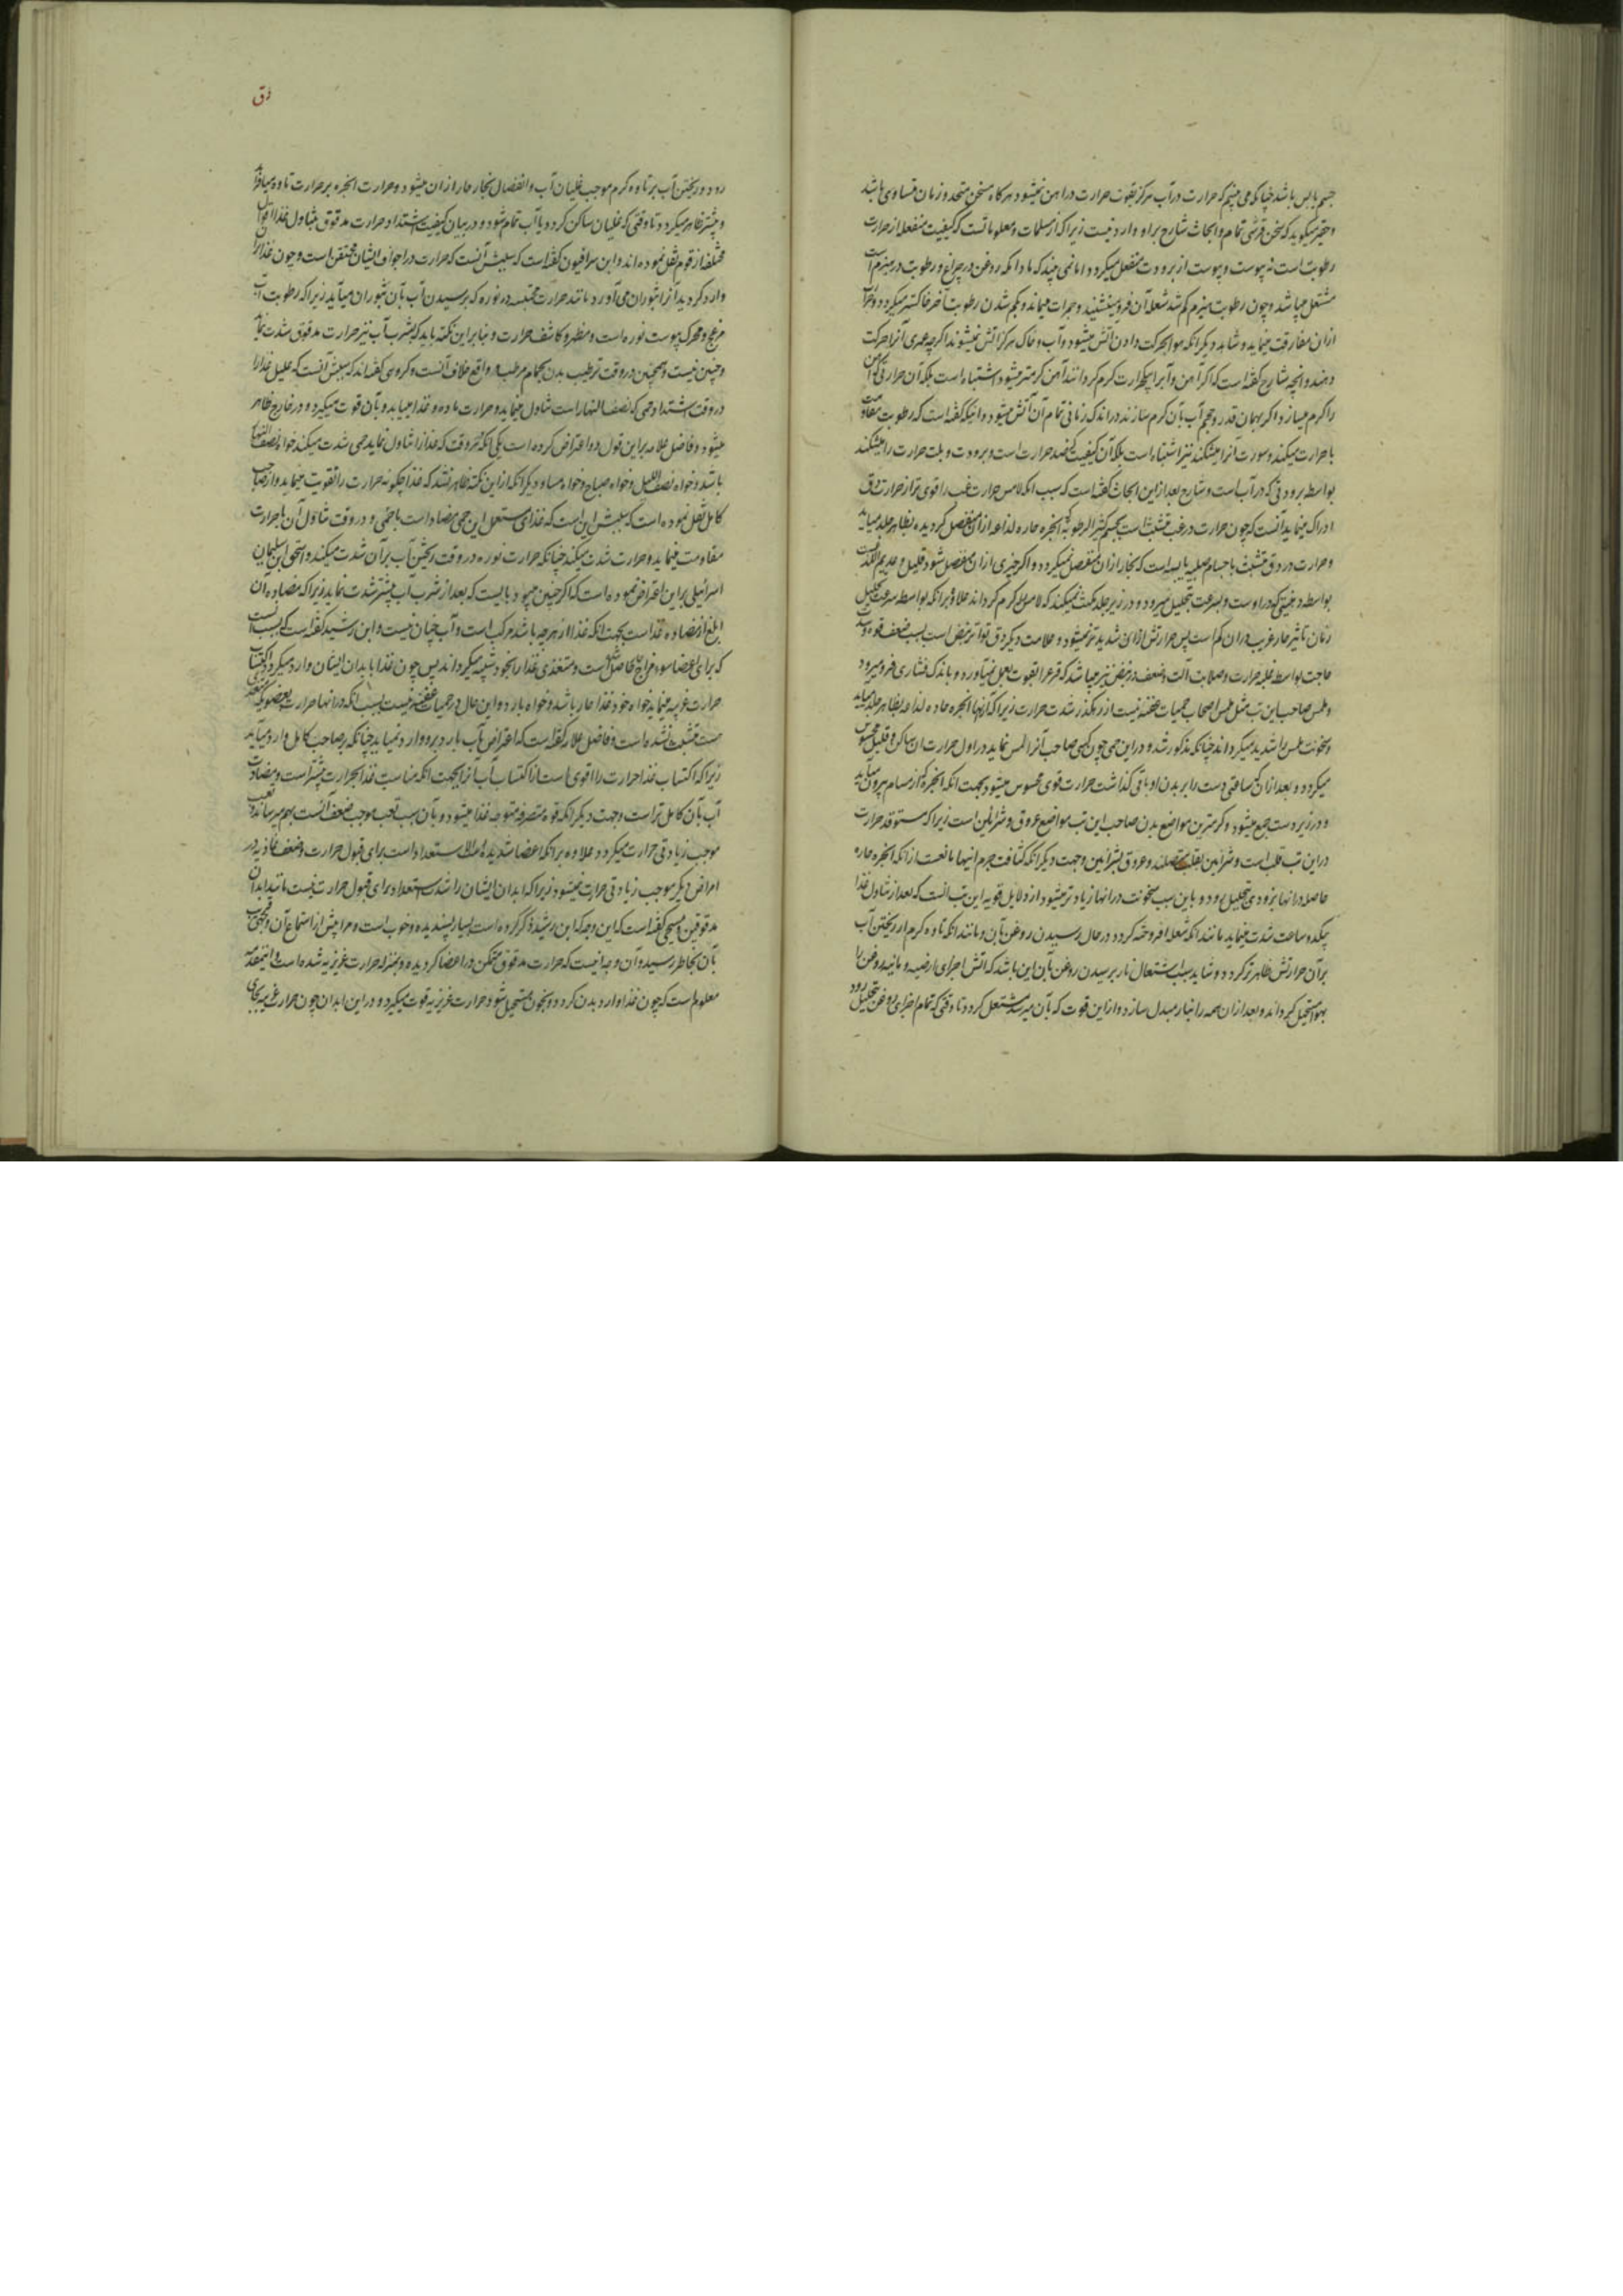 جسم یابس باشد چنانکه می بینیم که حرارت در آب هرگز بقوت حرارت در آهن نمیشود هرگاه مسخن متحد و زمان متساوی باشد
و حقیر میگوید که سخن قرشی تمام و ابحاث شارح بر او وارد نیست زیرا که از مسلمات و معلوماتست که کیفیت منفعله از حرارت
رطوبت است نه یبوست و یبوست از برودت منفعل میگردد اما نمی بیند که مادامکه روغن در چراغ و رطوبت در هیزم است
مشتعل میباشد و چون رطوبت هیزم کم شد شعله آن فرو می نشیند و جمرات میماند و بکم شدن رطوبت آخر خاکستر میگردد و حرارت
ازان مفارقت مینماید و شاهد دیگر آنکه هوا بحرکت دادن آتش میشود و آب و خاک هرگز آتش نمیشوند اگرچه عمری آنرا حرکت
دهند و آنچه شارح گفته است که اگر آهن و آب را بیک حرارت گرم گردانند آهن گرمتر میشود اشتباه است بلکه آن حرارتی که آهن
را گرم میسازد اگر بهمان قدر و حجم آب بآن گرم سازند در اندک زمانی تمام آن آتش میشود و اینکه گفته است که رطوبت مقاومت
با حرارت میکند و سورت آنرا میشکند نیز اشتباه است بلکه آن کیفیت که ضد حرارت است و برودت و بلت حرارت را میشکند
بواسطه برودتی که در آب است و شارح بعد از این ابحاث گفته است که سبب آنکه لامس حرارت غب را قوی تر از حرارت دق
ادراک مینماید آنست که چون حرارت در غب متشبث است بجسم کثیر الرطوبه که ابخره حاره لذاعه ازان منفصل گردیده بظاهر جلد میاید
و حرارت در دق متشبث باجسام صلبه یابسه است که بخار ازان منفصل نمیگردد و اگر چیزی ازان منفصل شود قلیل و عدیم اللذع است
بواسطه دهنیتی که در اوست و بسرعت تحلیل میرود و در زیر جلد مکث نمیکند که لامس را گرم گرداند علاوه بر آنکه بواسطه سرعت تحلیل
زمان تاثیر حار غریب دران کم است پس حرارتش ازان شدید تر نمیشود و علامت دیگر دق تواتر نبض است بسبب ضعف قوه و شدت
حاجت بواسطه غلبه حرارت و صلابت آلت و ضعف در نبض نیز میباشد که قرع را بقوت بعمل نمیآورد و باندک فشاری فرو میرود
و لمس صاحب این تب مثل لمس اصحاب حمیات عفنه نیست از رهگذر شدت حرارت زیرا که آنها ابخره حاده لذاعه بظاهر جلد میاید
و سخونت لمس را شدید میگرداند چنانکه مذکور شد و در این حمی چون کسی صاحب آنرا لمس نماید در اول حرارت ان ساکن و قلیل محسوس
میگردد و بعد ازان که ساعتی دست را بر بدن او باقی گذاشت حرارت قوی محسوس میشود بجهت آنکه ابخره که از مسام بیرون میآید
و در زیر دست جمع میشود و گرم ترین مواضع بدن صاحب این تب مواضع عروق و شرائین است زیرا که مستوقد حرارت
در این تب قلب است و شرائین بقلب متصلند و عروق بشرائین و جهت دیگر آنکه کثافت جرم اینها مانعست از آنکه ابخره حاره
حاصله در آنها بزودی تحلیل رود و باین سبب سخونت در آنها زیاد تر میشود از دلایل قویه این تب آنست که بعد از تناول غذا
بیکدو ساعت شدت مینماید مانند آنکه شعله افروخته گردد در حال رسیدن روغن بآن و مانند آنکه تاوه گرم از ریختن آب
بر آن حرارتش ظاهر تر گردد و شاید سبب اشتعال نار برسیدن روغن بآن این باشد که آتش اجزای ارضیه و مائیه روغن را
بهوا مستحیل گرداند و بعد ازان همه را بنار مبدل سازد و از این قوت که بآن میرسد مشتعل گردد تا وقتی که تمام اجزای روغن تحلیل رود
دق
رود و ریختن آب بر تاوه گرم موجب غلیان آب و انفصال بخار حار ازان میشود و حرارت ابخره بر حرارت تاوه میافزاید
و بیشتر ظاهر میگردد تا وقتی که غلیان ساکن گردد یا آب تمام شود و در بیان کیفیت اشتداد حرارت مدقوق بتناول غذا اقوال
مختلفه از قوم نقل نموده اند و ابن سرافیون گفته است که سببش آنست که حرارت در اجواف ایشان محتقن است و چون غذا بران
وارد گردید آنرا بثوران می آورد مانند حرارت محتبسه در نوره که برسیدن آب بآن بثوران میآید زیرا که رطوبت آب
مزعج و محرک یبوست نوره است و مظهر و کاشف حرارت و بنابر این نکته باید که بشرب آب نیز حرارت مدقوق شدت نماید
و چنین نیست و همچنین در وقت ترطیب بدن بحمام مرطب و واقع خلاف آنست و گروهی گفته اند که سببش آنست که علیل غذا را
در وقت اشتداد حمی که نصف النهار است تناول مینماید و حرارت ماده و غذا مییابد و بآن قوت میگیرد و در خارج ظاهر
میشود و فاضل علامه بر این قول دو اعتراض کرده است یکی آنکه هر وقت که غذا را تناول نماید حمی شدت میکند خواه نصف النهار
باشد و خواه نصف اللیل و خواه صباح و خواه مساء و دیگر آنکه از این نکته ظاهر نشد که غذا چگونه حرارت را تقویت مینماید و از صاحب
کامل نقل نموده است که سببش این است که غذای مستعمل این حمی مضاد است با حمی و در وقت تناول آن با حرارت
مقاومت مینماید و حرارت شدت میکند چنانکه حرارت نوره در وقت ریختن آب بر آن شدت میکند و اسحق ابن سلیمان
اسرائیلی بر این اعتراض نموده است که اگر چنین میبود بایست که بعد از شرب آب بیشتر شدت نماید زیرا که مضاده آن
ابلغ از مضاده غذا است بجهت آنکه غذا از هر چه باشد مرکب است و آب چنان نیست و ابن رشید گفته است که سبب آنست
که برای اعضا سوء مزاج حار حاصل است و متغذی غذا را بخود شبیه میگرداند پس چون غذا بابدان ایشان وارد میگردد اکتساب
حرارت غریبه مینماید خواه خود غذا حار باشد و خواه بارد و این حال در حمیات عفنه نیست بسبب آنکه در آنها حرارت بعضو که
هست متشبث نشده است و فاضل علامه گفته است که اعتراض بآب بارد بر او وارد نمیاید چنانکه بر صاحب کامل وارد میآید
زیرا که اکتساب غذا حرارت را اقوی است از اکتساب آب از این جهت آنکه مناسبت غذا بحرارت بیشتر است و مضادت
آب بآن کامل تر است و جهت دیگر آنکه قوه متصرفه متوجه غذا میشود و بآن سبب تعب موجب ضعف آنست بهم میرساند و تعب
موجب زیادتی حرارت میگردد و علاوه بر آنکه اعضا شدیده الاستعداد است برای قبول حرارت و ضعف غاذیه در
امراض دیگر موجب زیادتی حرارت نمیشود زیرا که ابدان ایشان را شدت استعداد برای قبول حرارت نیست مانند ابدان
مدقوقین و مسیحی گفته است که این وجه که ابن رشید ذکر کرده است بسیار پسندیده و خوب است و مرا پیش از استماع آن وجهی
بآن بخاطر رسید و آن وجه اینست که حرارت مدقوق متمکن در اعضا گردیده و بمنزله حرارت غریزیه شده است و این مقدمه
معلوم است که چون غذا وارد بدن گردد و بخون مستحیل شود حرارت غریزیه قوت میگیرد و در این ابدان چون حرارت غریبه بجای